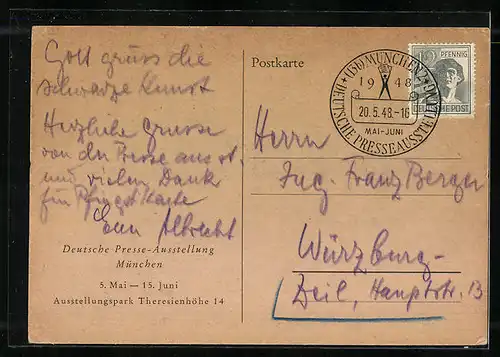 Gott grüss die
schwarze Kunst
Herzliche Grüsse
von der Presse aus st.
und vielen Dank
für Pfingstkarte
Euer Albrecht
Deutsche Presse-Ausstellung
München
5. Mai — 15. Juni
Ausstellungspark Theresienhöhe 14
Postkarte
MÜNCHEN 2 (US)
19 48
20.5.48.-16
MAI-JUNI
DEUTSCHE PRESSEAUSSTELLUNG
PFENNIG
DEUTSCHE POST
Herrn
Ing. Franz Berger
Würzburg-
Zeil, Hauptstr. 13